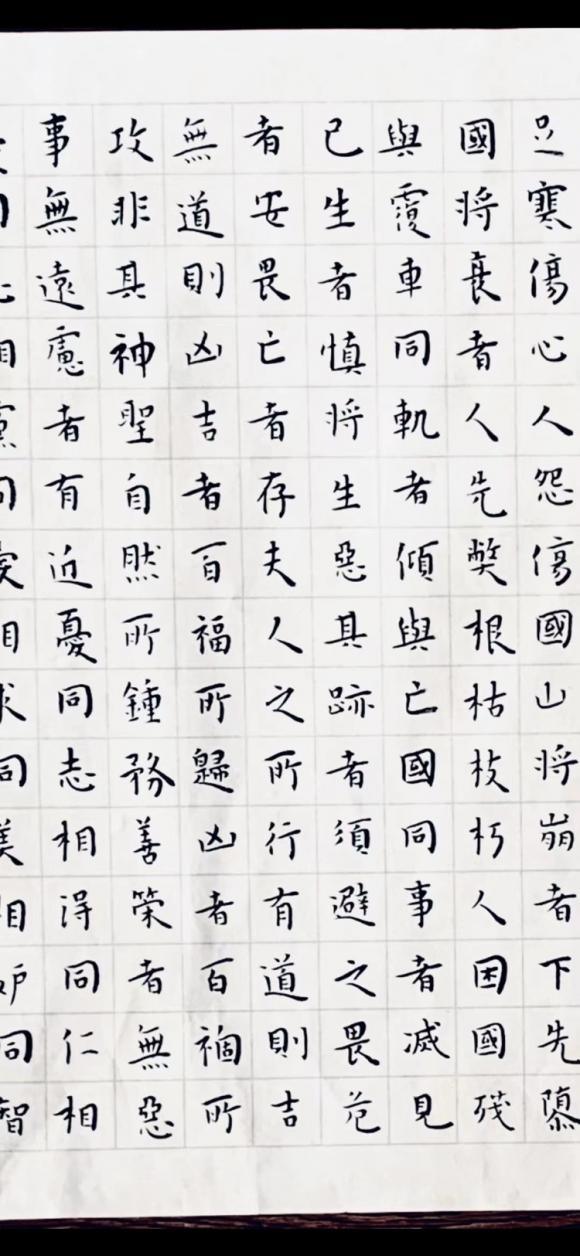 足寒傷心人怨傷國山将崩者下先隳
國将衰者人先弊根枯枝朽人困國殘
與覆車同軌者傾與亡國同事者滅見
已生者慎将生惡其跡者須避之畏危
者安畏亡者存夫人之所行有道則吉
無道則凶吉者百福所歸凶者百禍所
攻非其神聖自然所鍾務善策者無惡
事無遠慮者有近憂同志相得同仁相
同美相妒同智